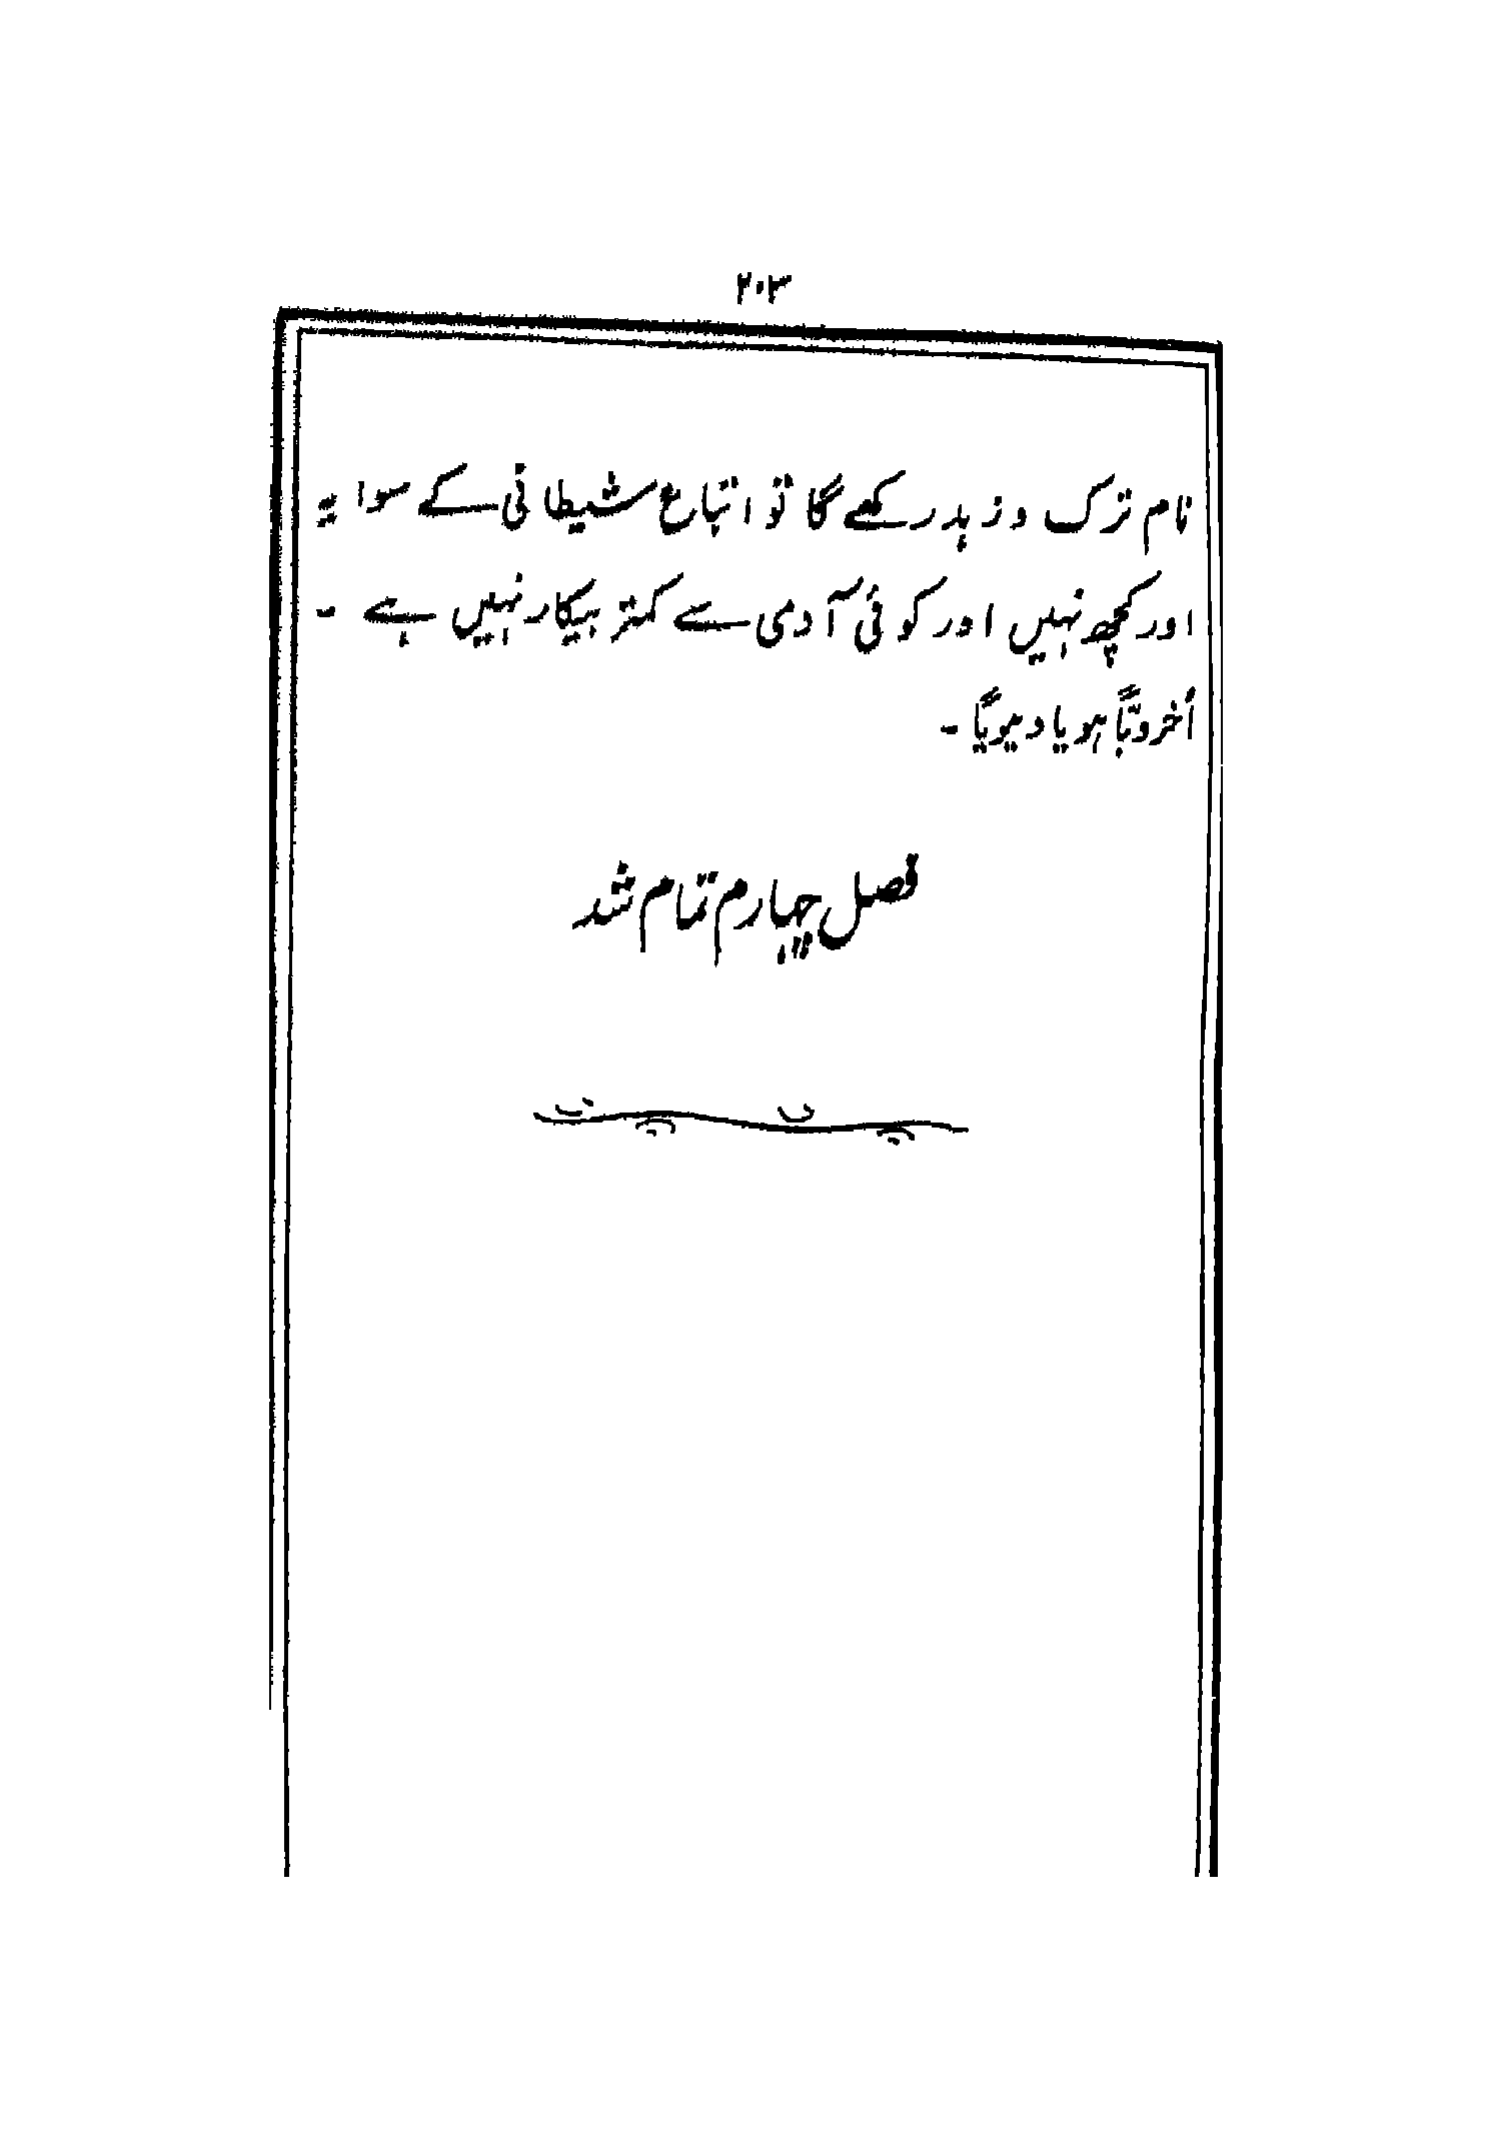 ۲۰۳
نام ترک و زہد رکھے گا تو اتباع شیطانی کے سوا یہ
اور کچھ نہیں اور کوئی آدمی سے کمتر بیکار نہیں ہے ۔
اُخرویّاً ہو یا دنیویاً ۔
فصل چہارم تمام شد